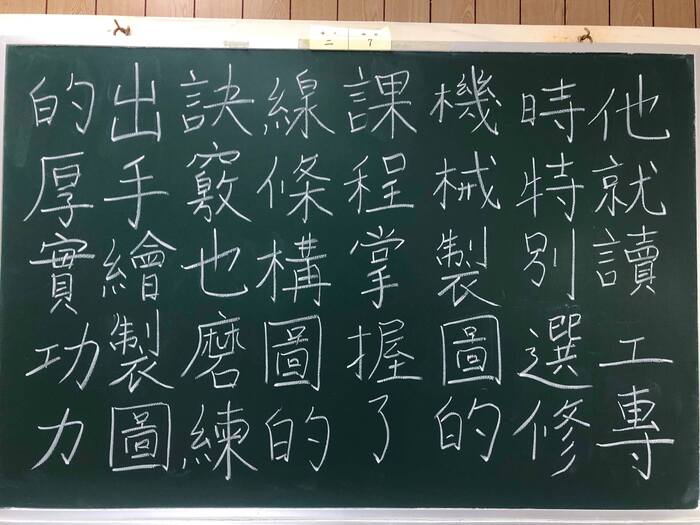 二 7
他就讀工專
時特別選修
機械製圖的
課程掌握了
線條構圖的
訣竅也磨練
出手繪製圖
的厚實功力